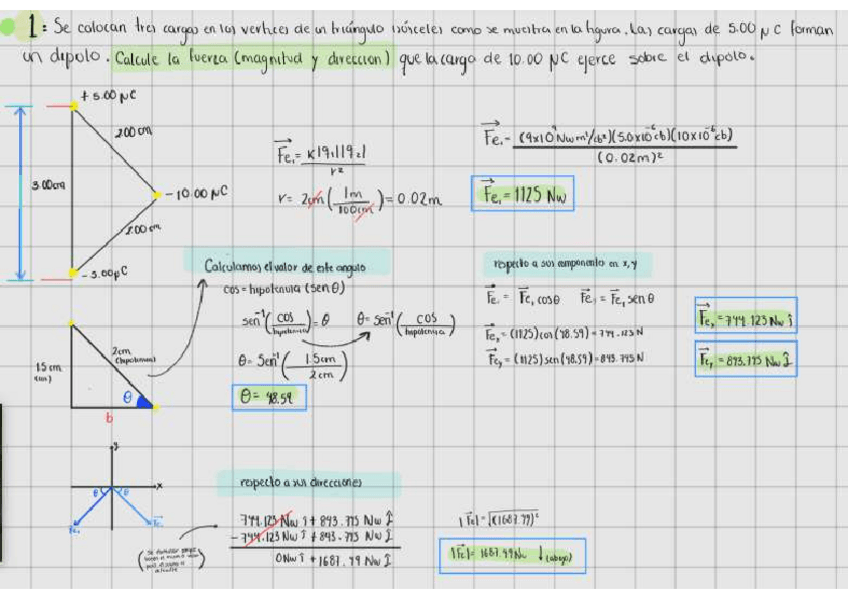 1: Se colocan tres cargas en los vertices de un triángulo isósceles como se muestra en la figura. Las cargas de 5.00 μC forman
un dipolo. Calcule la fuerza (magnitud y direccion) que la carga de 10.00 μC ejerce sobre el dipolo.
+ 5.00 μC
2.00 cm
3.00cm
-10.00 μC
2.00 cm
- 5.00μC
Fe₁ = K|q₁||q₂|
r²
r = 2cm (1m
100cm) = 0.02m
Fe₁ = (9x10⁹Nwm²/cb²)(5.0x10⁻⁶cb)(10x10⁻⁶cb)
(0.02m)²
Fe₁ = 1125 Nw
Calculamos el valor de este angulo
cos = hipotenusa (sen θ)
sen⁻¹(cos
hipotenusa) = θ
θ = sen⁻¹(cos
hipotenusa)
θ = Sen⁻¹(1.5cm
2cm)
θ = 48.59
2cm
(hipotenusa)
1.5 cm
θ
b
respecto a sus componentes en x,y
Fe₁ = Fe₁ cosθ Fe₁ = Fe₁ sen θ
Feₓ = (1125)cos(48.59) = 744.123N
Feᵧ = (1125)sen(48.59) = 843.745N
Feₓ = 744.123 Nw î
Feᵧ = 843.745 Nw ĵ
y
x
θ θ
respecto a sus direcciones
744.123 Nw î + 843.745 Nw ĵ
- 744.123 Nw î + 843.745 Nw ĵ
0Nw î + 1687.49 Nw ĵ
|Fe| = √(1687.49)²
|Fe| = 1687.49Nw ↓ (abajo)